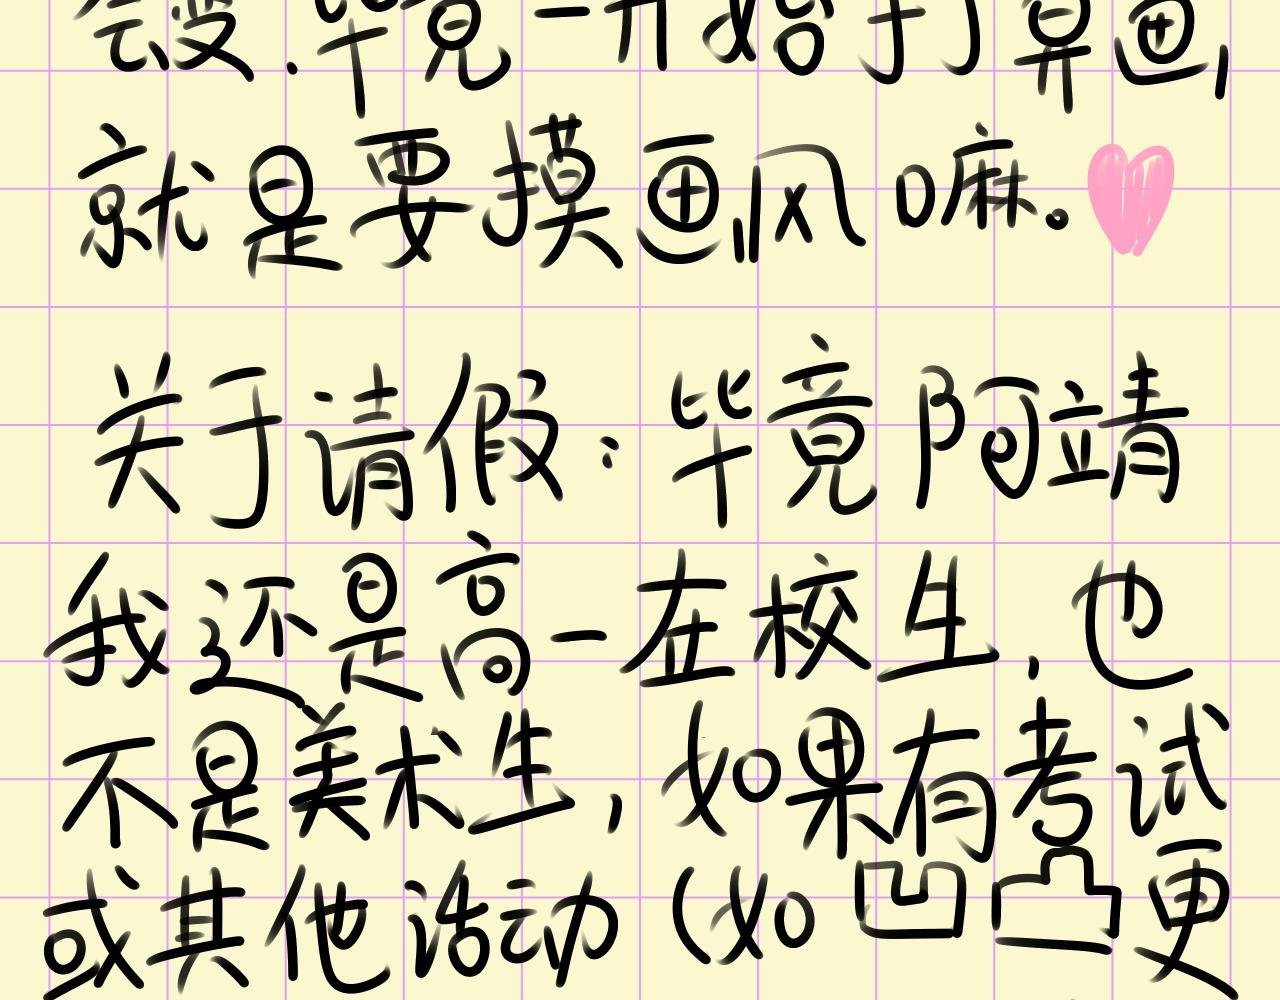 会变.毕竟一开始打算画,
就是要摸画风嘛。
关于请假：毕竟阿靖
我还是高一在校生，也
不是美术生，如果有考试
或其他活动（如凹凸更